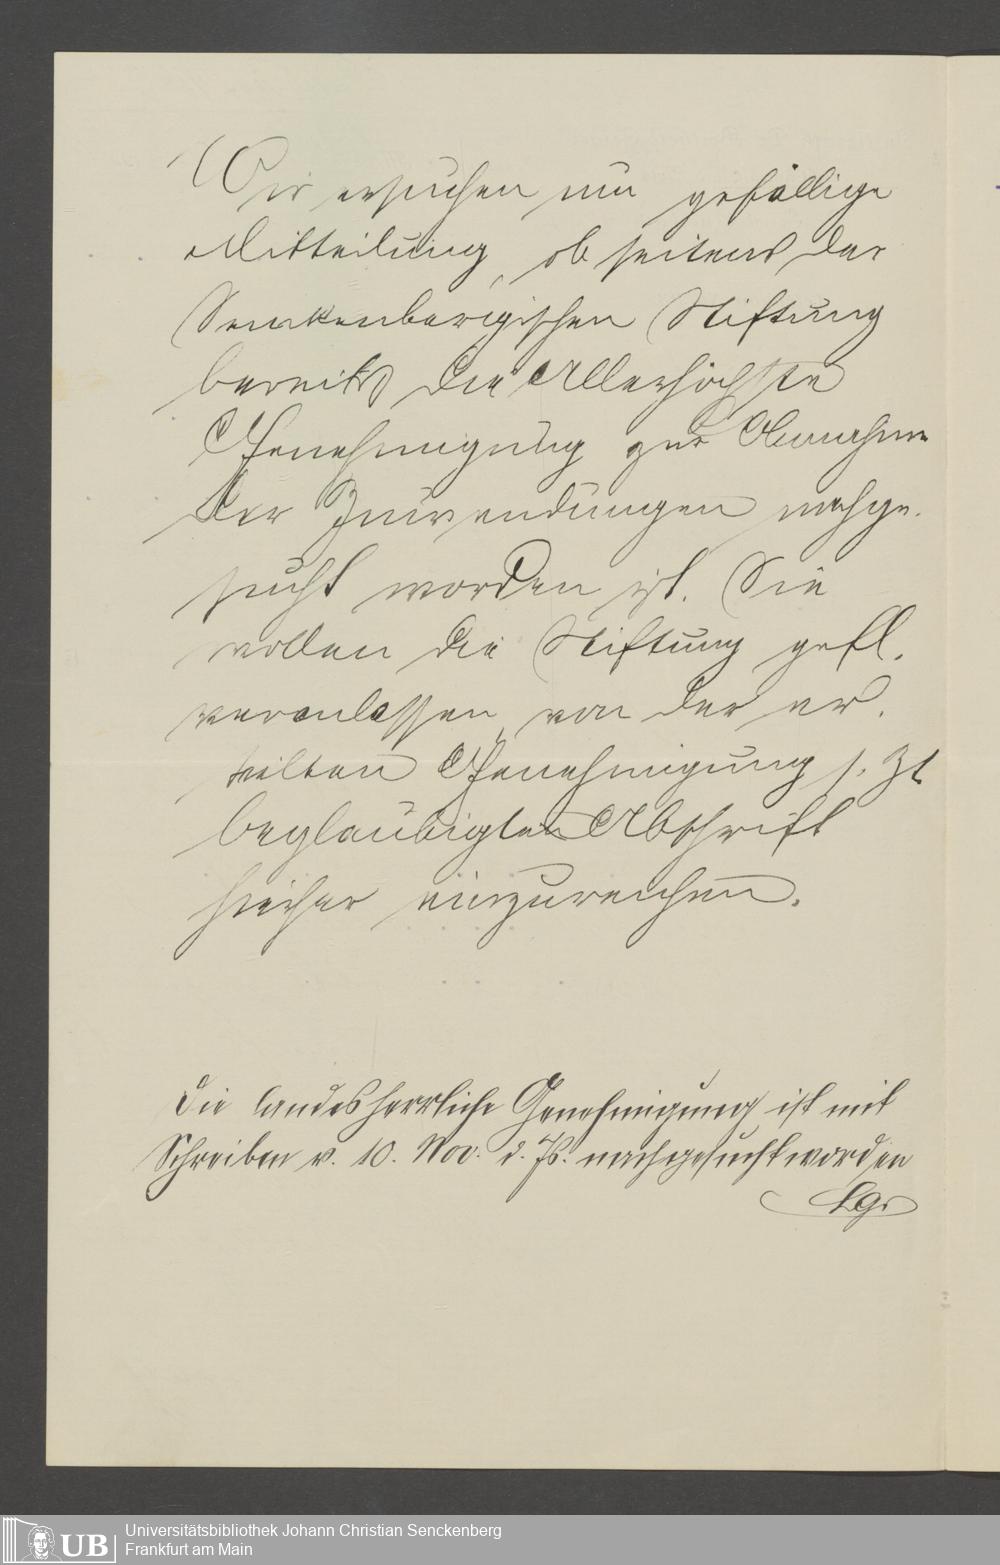 Wir ersuchen um gefällige
Mitteilung, ob seitens der
Senckenbergischen Stiftung
bereits die Allerhöchste
Genehmigung zur Annahme
der Zuwendungen nachge-
sucht worden ist. Sie
wollen die Stiftung gefl.
veranlassen, von der er-
teilten Genehmigung s. Zt
beglaubigten Abschrift
hierher einzureichen.
Die landesherrliche Genehmigung ist mit
Schreiben v. 10. Nov. d. Js. nachgesucht worden
Universitätsbibliothek Johann Christian Senckenberg
Frankfurt am Main
UB